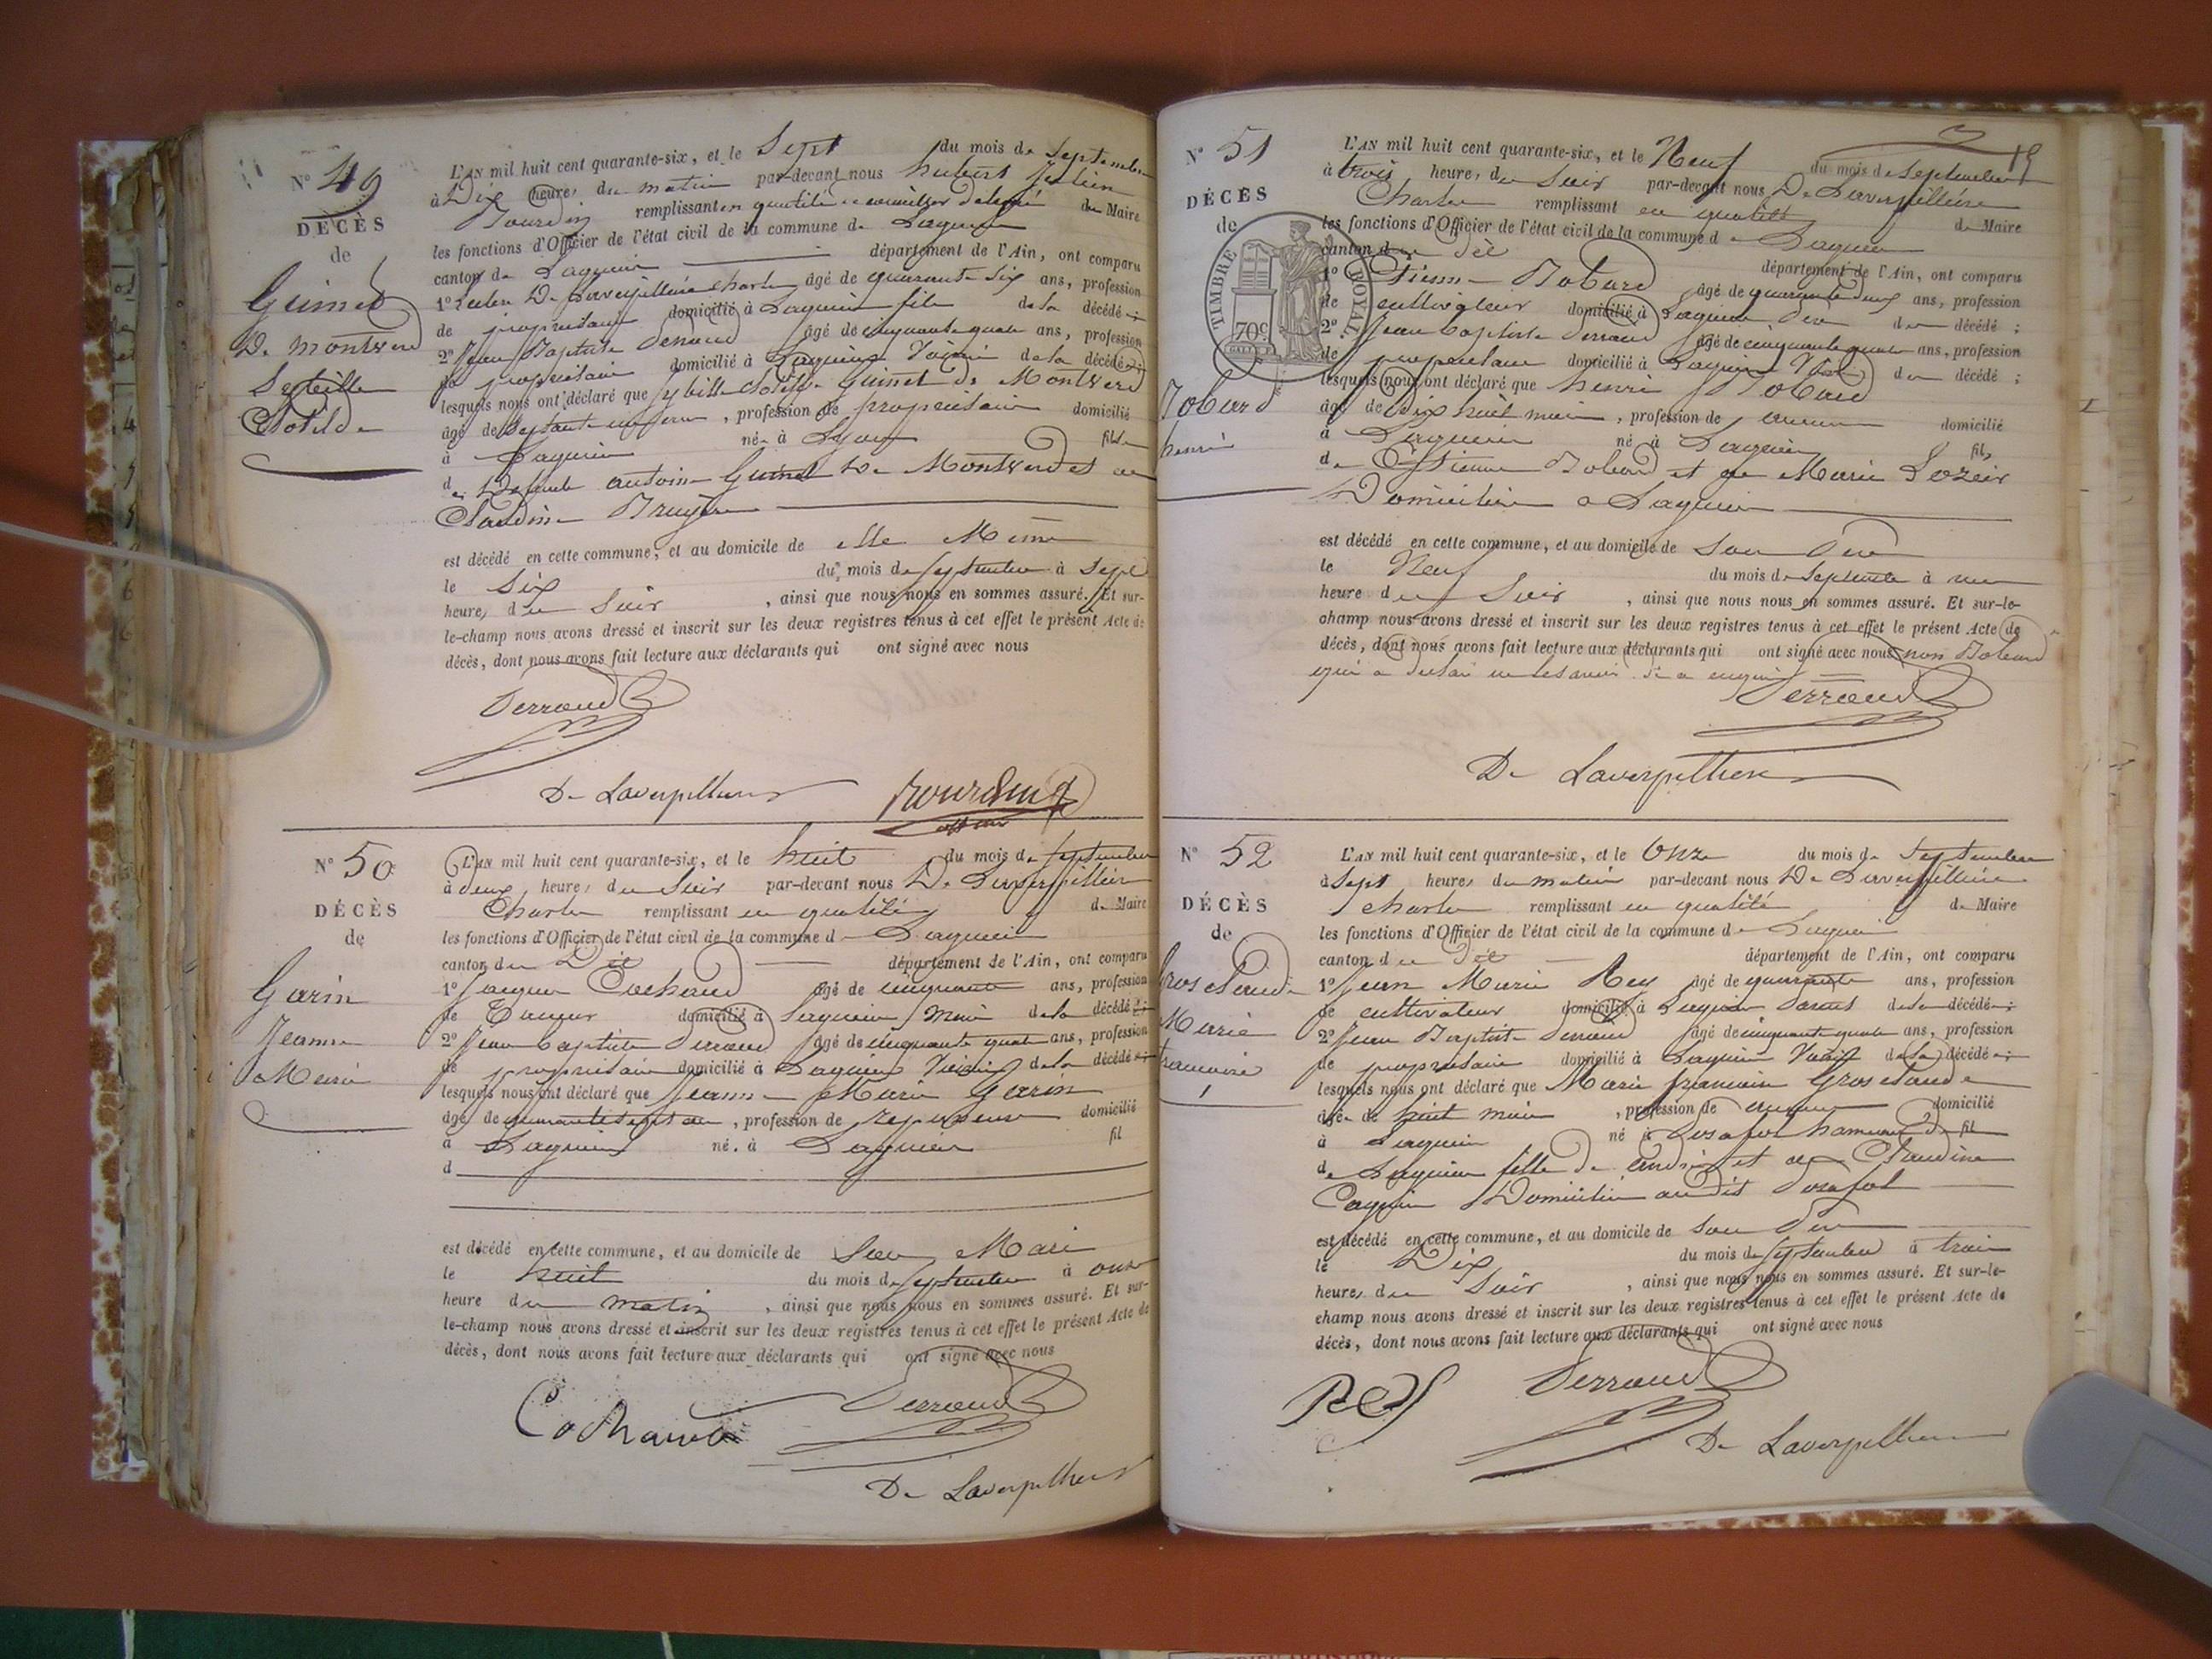 N° 49
DÉCÈS
de
Guinet
De Montverd
Sybille
Clotilde
L'AN mil huit cent quarante-six, et le Sept du mois de Septembre
à Dix heures du matin par-devant nous hubert
Bourdin remplissant en qualité de conseiller délégué de Maire
les fonctions d'Officier de l'état civil de la commune de Lagnieu
canton de Lagnieu département de l'Ain, ont comparu
1° De Laverpillière Charles âgé de quarante six ans, profession
de propriétaire domicilié à Lagnieu fils de la décédée ;
2° Jean Baptiste Derraud âgé de cinquante quatre ans, profession
de propriétaire domicilié à Lagnieu Voisin de la décédée ;
lesquels nous ont déclaré que Sybille Clotilde Guinet de Montverd
âgé de septante un ans, profession de propriétaire domicilié
à Lagnieu née à Lyon fille
de Defunt antoine Guinet De Montverd et de
Claudine Bruyère
est décédé en cette commune, et au domicile de elle Même
le Six du mois de septembre à Sept
heures du Soir, ainsi que nous nous en sommes assuré. Et sur-
le-champ nous avons dressé et inscrit sur les deux registres tenus à cet effet le présent Acte de
décès, dont nous avons fait lecture aux déclarants qui ont signé avec nous
Derraud
De Laverpilliere Bourdin
N° 50
DÉCÈS
de
Garin
Jeanne
Marie
L'AN mil huit cent quarante-six, et le huit du mois de septembre
à deux heures du Soir par-devant nous De Laverpillière
Charles remplissant en qualité de Maire
les fonctions d'Officier de l'état civil de la commune de Lagnieu
canton du Dit département de l'Ain, ont comparu
1° Jacques Cochaud âgé de cinquante ans, profession
de Tanneur domicilié à Lagnieu Mari de la décédée ;
2° Jean Baptiste Derraud âgé de cinquante quatre ans, profession
de propriétaire domicilié à Lagnieu Voisin de la décédée ;
lesquels nous ont déclaré que Jeanne Marie Garin
âgé de quarante sept ans, profession de domicilié
à Lagnieu née à Lagnieu fil
d
est décédé en cette commune, et au domicile de Son Mari
le huit du mois de septembre à onze
heure du matin, ainsi que nous nous en sommes assuré. Et sur-
le-champ nous avons dressé et inscrit sur les deux registres tenus à cet effet le présent Acte de
décès, dont nous avons fait lecture aux déclarants qui ont signé avec nous
Cochaud Derraud
De Laverpilliere
N° 51
DÉCÈS
de
TIMBRE ROYAL
70 c.
Bobard
henri
L'AN mil huit cent quarante-six, et le Neuf du mois de septembre
à trois heures du Soir par-devant nous De Laverpillière
Charles remplissant en qualité de Maire
les fonctions d'Officier de l'état civil de la commune de Lagnieu
canton du Dit département de l'Ain, ont comparu
1° Etienne Bobard âgé de quarante deux ans, profession
de cultivateur domicilié à Lagnieu père du décédé ;
2° Jean Baptiste Derraud âgé de cinquante quatre ans, profession
de propriétaire domicilié à Lagnieu Voisin du décédé ;
lesquels nous ont déclaré que henri Bobard
âgé de Dix huit mois, profession de aucune domicilié
à Lagnieu né à Lagnieu fils
de Etienne Bobard et de Marie Lozier
Domiciliés a Lagnieu
est décédé en cette commune, et au domicile de Son Père
le Neuf du mois de Septembre à une
heure du Soir, ainsi que nous nous en sommes assuré. Et sur-le-
champ nous avons dressé et inscrit sur les deux registres tenus à cet effet le présent Acte de
décès, dont nous avons fait lecture aux déclarants qui ont signé avec nous non Bobard
Derraud
De Laverpilliere
N° 52
DÉCÈS
de
Grosclaude
Marie
francoise
L'AN mil huit cent quarante-six, et le Onze du mois de Septembre
à Sept heures du matin par-devant nous De Laverpillière
Charles remplissant en qualité de Maire
les fonctions d'Officier de l'état civil de la commune de Lagnieu
canton du Dit département de l'Ain, ont comparu
1° Jean Marie Rey âgé de quarante ans, profession
de cultivateur domicilié à Lagnieu Parent de la décédée ;
2° Jean Baptiste Derraud âgé de cinquante quatre ans, profession
de propriétaire domicilié à Lagnieu Voisin de la décédée ;
lesquels nous ont déclaré que Marie francoise Grosclaude
âgée de huit mois, profession de aucune domicilié
à Lagnieu né à Posafol hameau de fil
de Lagnieu fille de andré et de Claudine
Domiciliés audit Posafol
est décédé en cette commune, et au domicile de Son Père
le Dix du mois de septembre à trois
heures du Soir, ainsi que nous nous en sommes assuré. Et sur-le-
champ nous avons dressé et inscrit sur les deux registres tenus à cet effet le présent Acte de
décès, dont nous avons fait lecture aux déclarants qui ont signé avec nous
Rey Derraud
De Laverpilliere